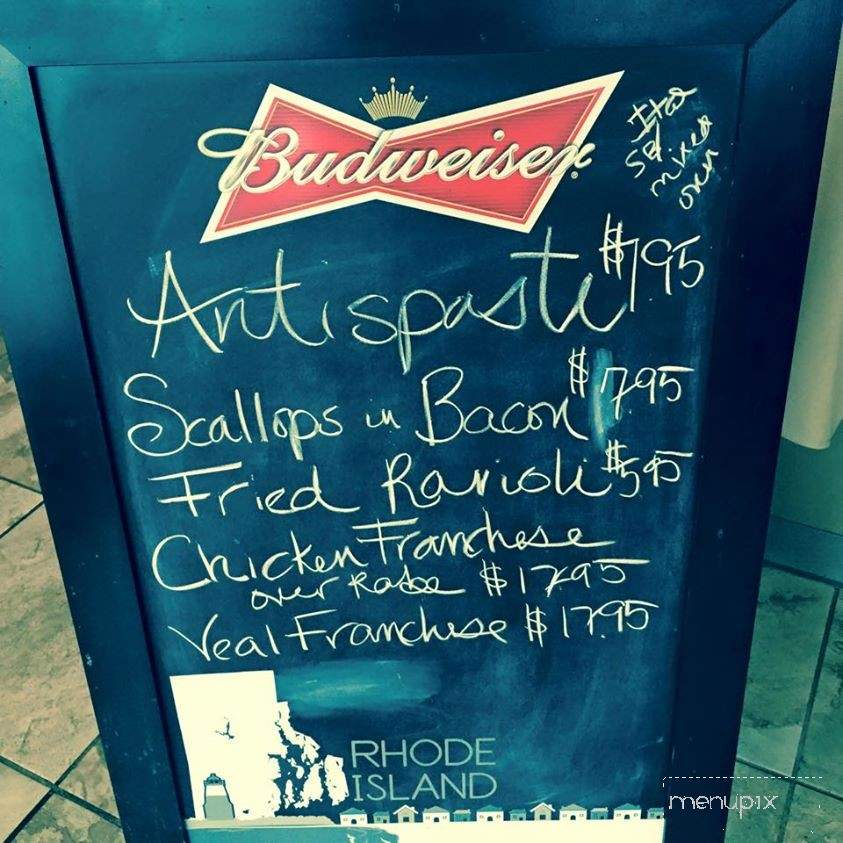 Budweiser
Antispasti $7.95
Scallops in Bacon $7.95
Fried Ravioli $5.95
Chicken Franchese
over Rabe $17.95
Veal Franchese $17.95
RHODE
ISLAND
menupix